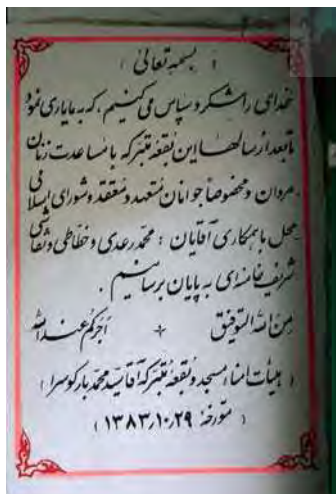 ( بسمه تعالی )
خدای را شکر و سپاس می‌کنیم، که به ما یاری نمود
تا بعد از سالها این بقعه متبرکه با مساعدت زنان
مردان و مخصوصاً جوانان متعهد و معتقد و شورای اسلامی
محل با همکاری آقایان : محمد رعدی و خطاطی و نقاشی
شریف به پایان برسانیم .
من الله التوفیق + اجرکم عند الله
( هیأت امناء مسجد و بقعه متبرکه آقا سید محمد بارکوسرا )
( مورخهٔ ۱۳۸۳٫۱۰٫۲۹ )